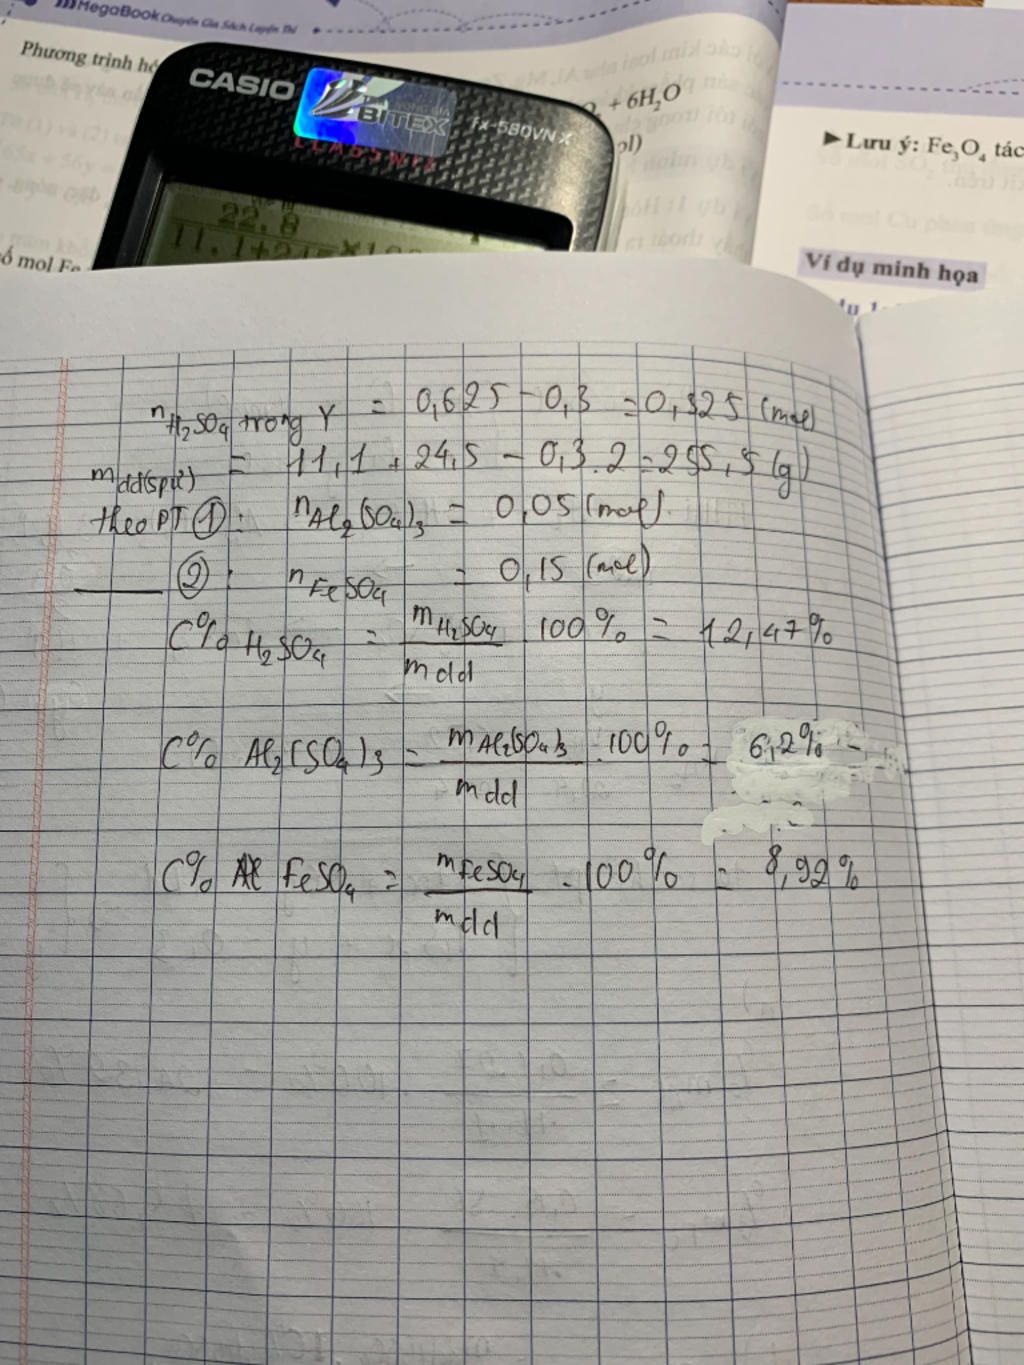 MegaBook Chuyên Gia Sách Luyện Thi
Phương trình
CASIO
BITEX
fx-580VN X
CLASSWIZ
+ 6H₂O
ol)
22.8
►Lưu ý: Fe₃O₄ tác
Ví dụ minh họa
ố mol Fe
n H₂SO₄ trong Y = 0,625 - 0,3 = 0,325 (mol)
m dd(spứ) = 11,1 + 24,5 - 0,3.2 = 255,5 (g)
theo PT ①: nAl₂(SO₄)₃ = 0,05 (mol).
②: nFeSO₄ = 0,15 (mol)
C% H₂SO₄ = mH₂SO₄ / mdd 100% = 12,47%
C% Al₂(SO₄)₃ = mAl₂(SO₄)₃ / mdd . 100% = 6,2%
C% FeSO₄ = mFeSO₄ / mdd . 100% = 8,92%